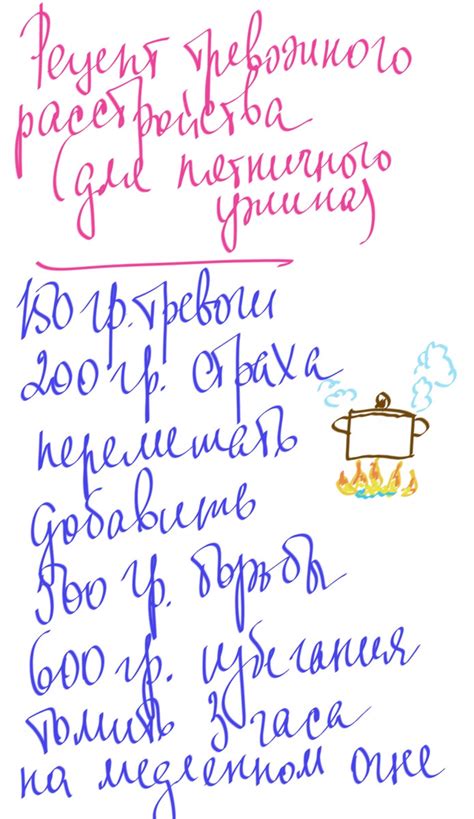 Рецепт тревожного
расстройства
(для пятничного
ужина)
150 гр. тревоги
200 гр. страха
перемешать
добавить
500 гр. борьбы
600 гр. избегания
томить 3 часа
на медленном огне